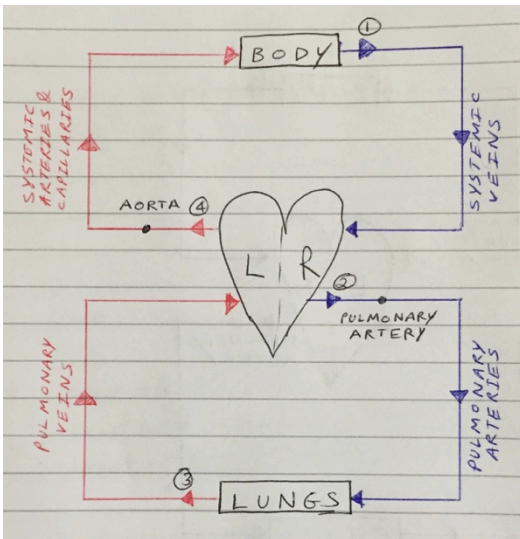 ①
BODY
SYSTEMIC
ARTERIES &
CAPILLARIES
SYSTEMIC
VEINS
AORTA ④
L R
②
PULMONARY
ARTERY
PULMONARY
VEINS
PULMONARY
ARTERIES
③
LUNGS